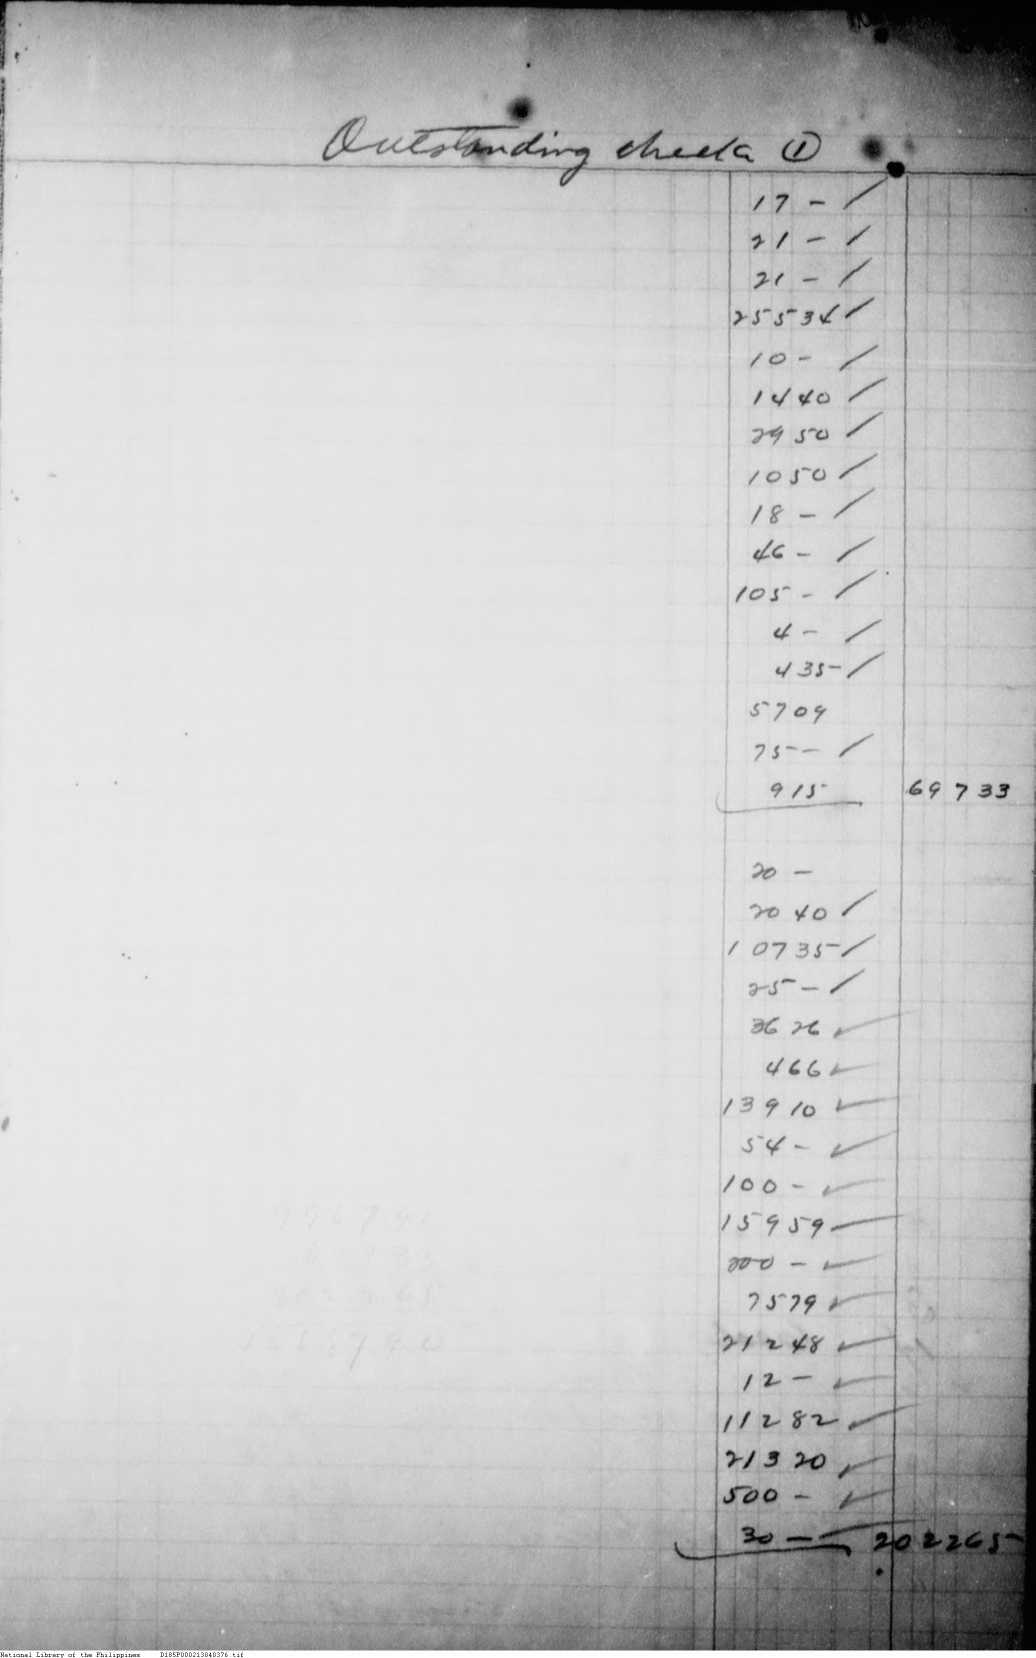 Outstanding checks ①
17 -
21 -
21 -
255 34
10 -
14 40
29 50
10 50
18 -
46 -
105 -
4 -
4 35
57 09
75 -
9 15 697 33
20 -
20 40
107 35
25 -
36 26
4 66
139 10
54 -
100 -
159 59
200 -
75 79
212 48
12 -
112 82
213 20
500 -
30 - 2022 65
National Library of the Philippines D185P000213040376.tif